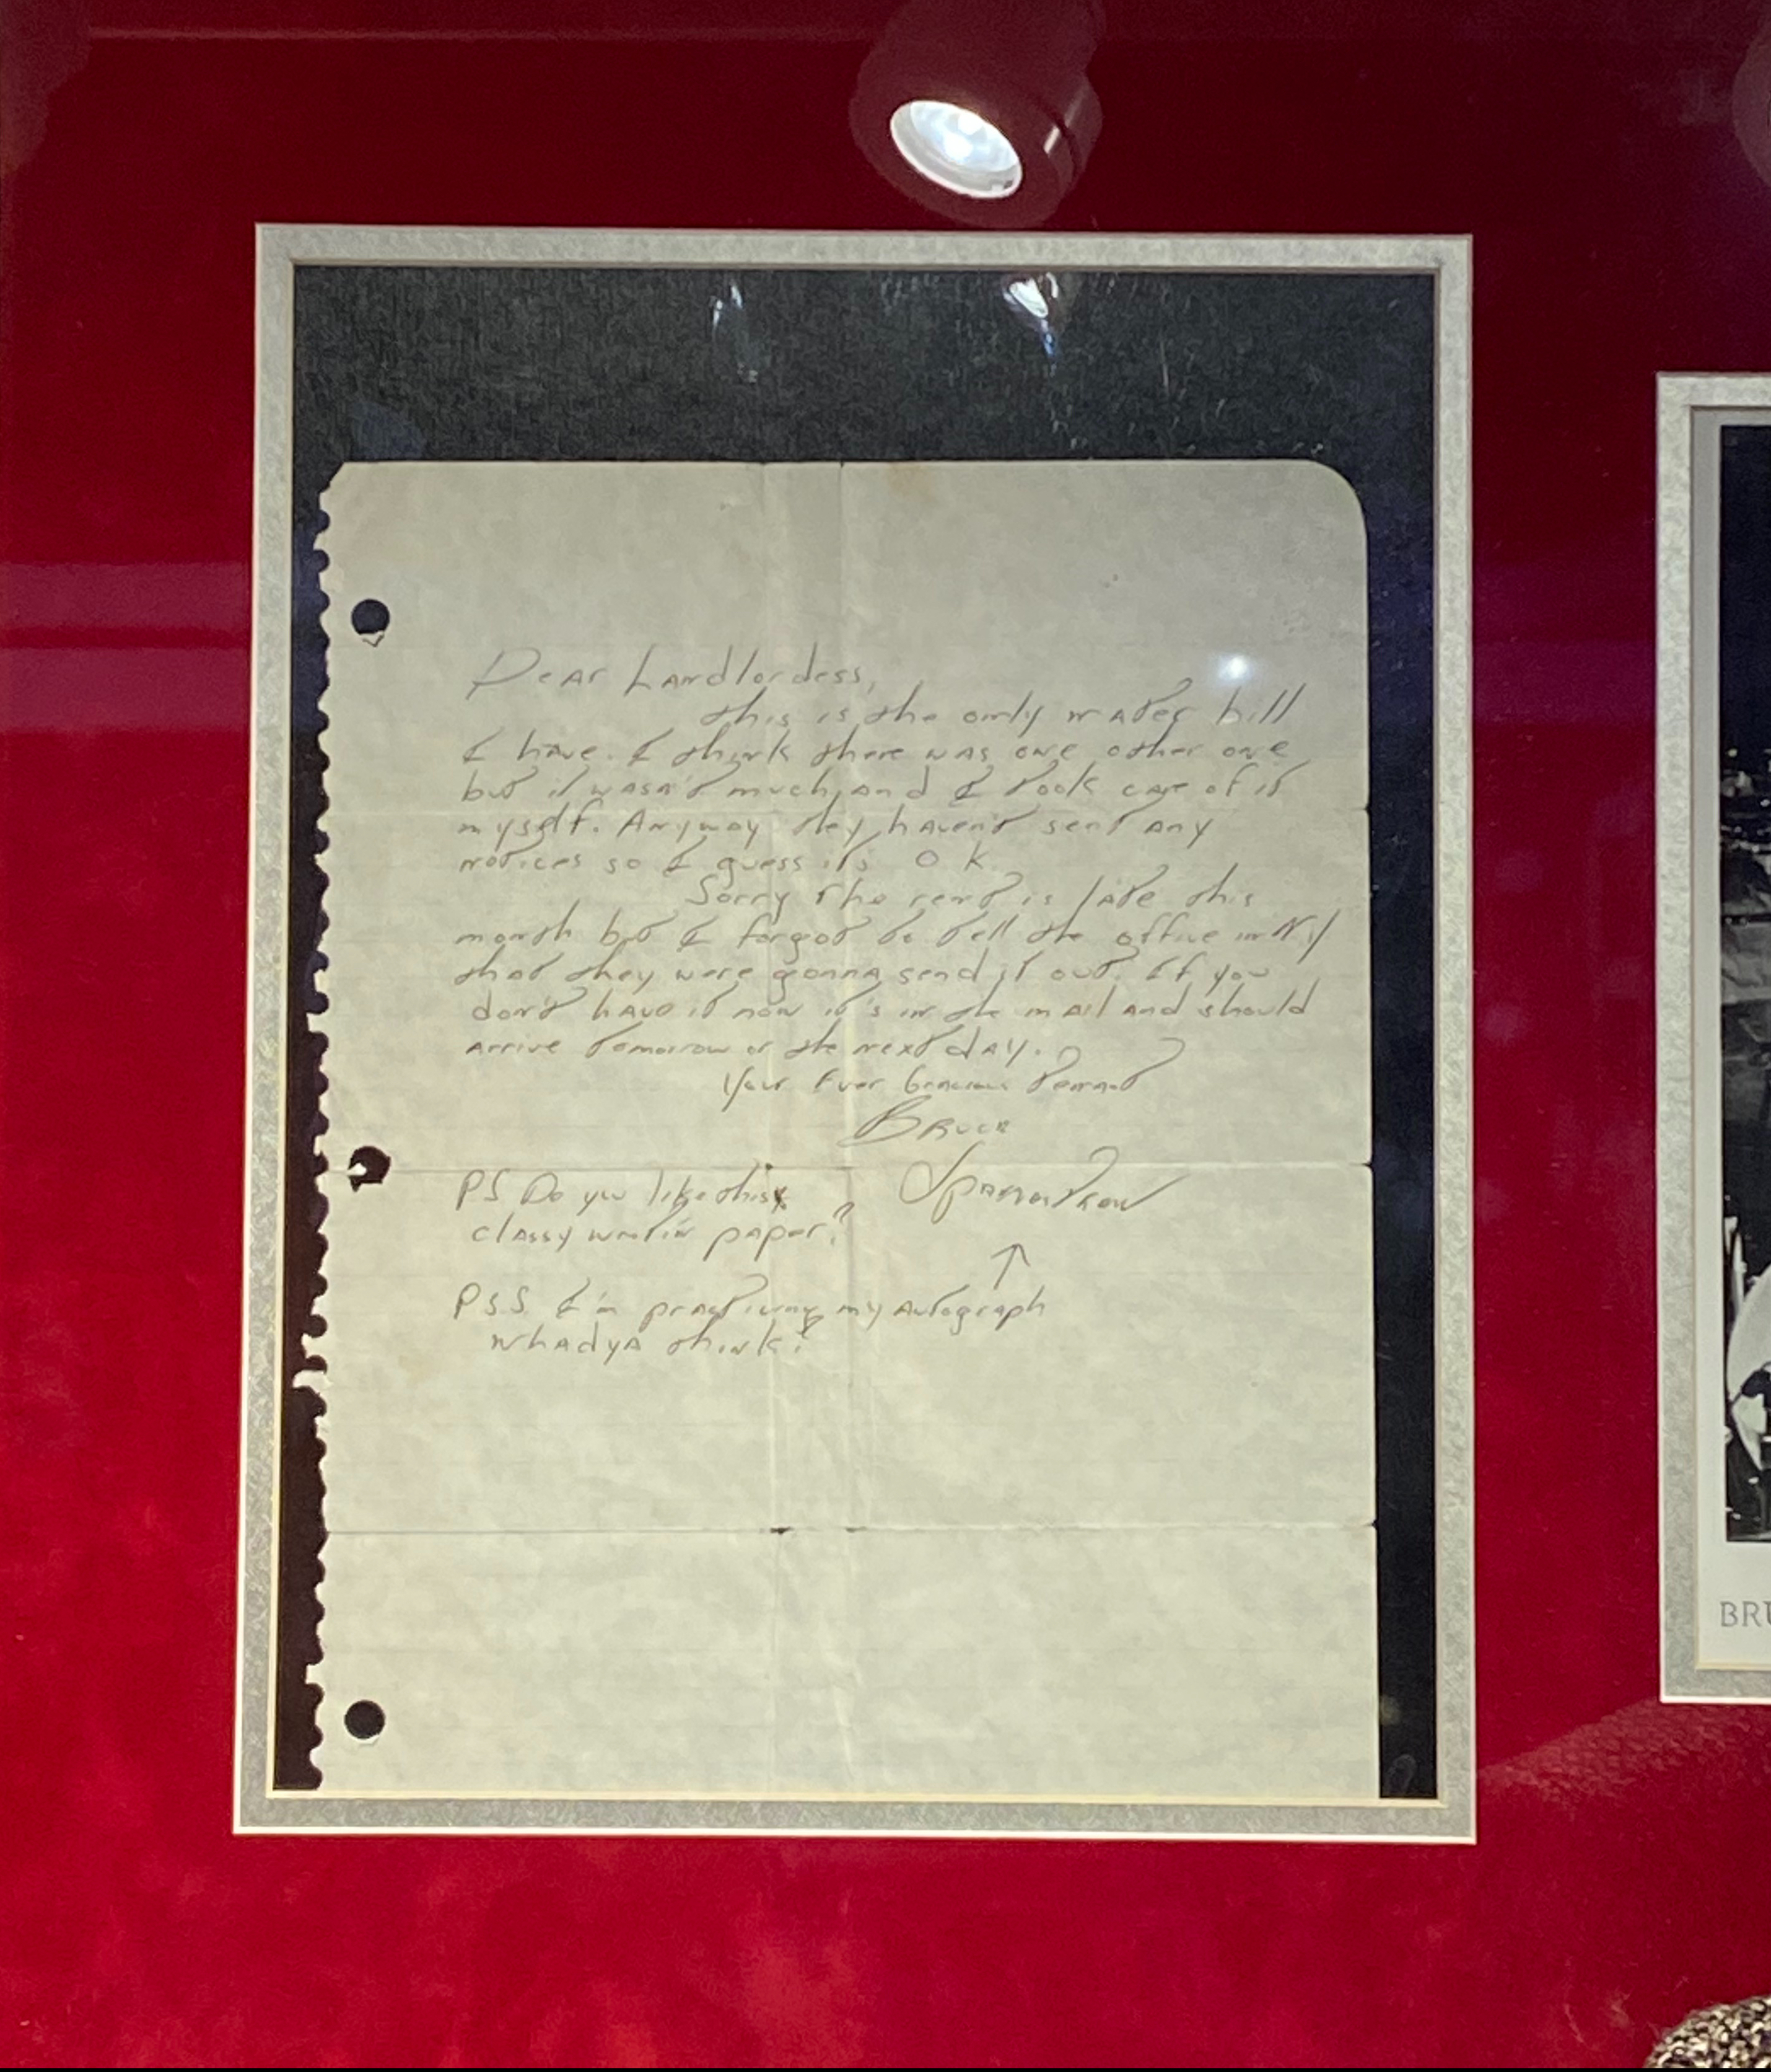 Dear Landlordess,
this is the only water bill
I have. I think there was one other one
but it wasn't much, and I took care of it
myself. Anyway they haven't sent any
notices so I guess it's O K.
Sorry the rent is late this
month but I forgot to tell the office in N.Y
that they were gonna send it out. If you
don't have it now it's in the mail and should
arrive tomorrow or the next day.
Your Ever Gracious Tennant
Bruce
PS Do you like this
classy writin' paper?
↑
P.S.S. I'm practicing my autograph
whadya think?
BRU